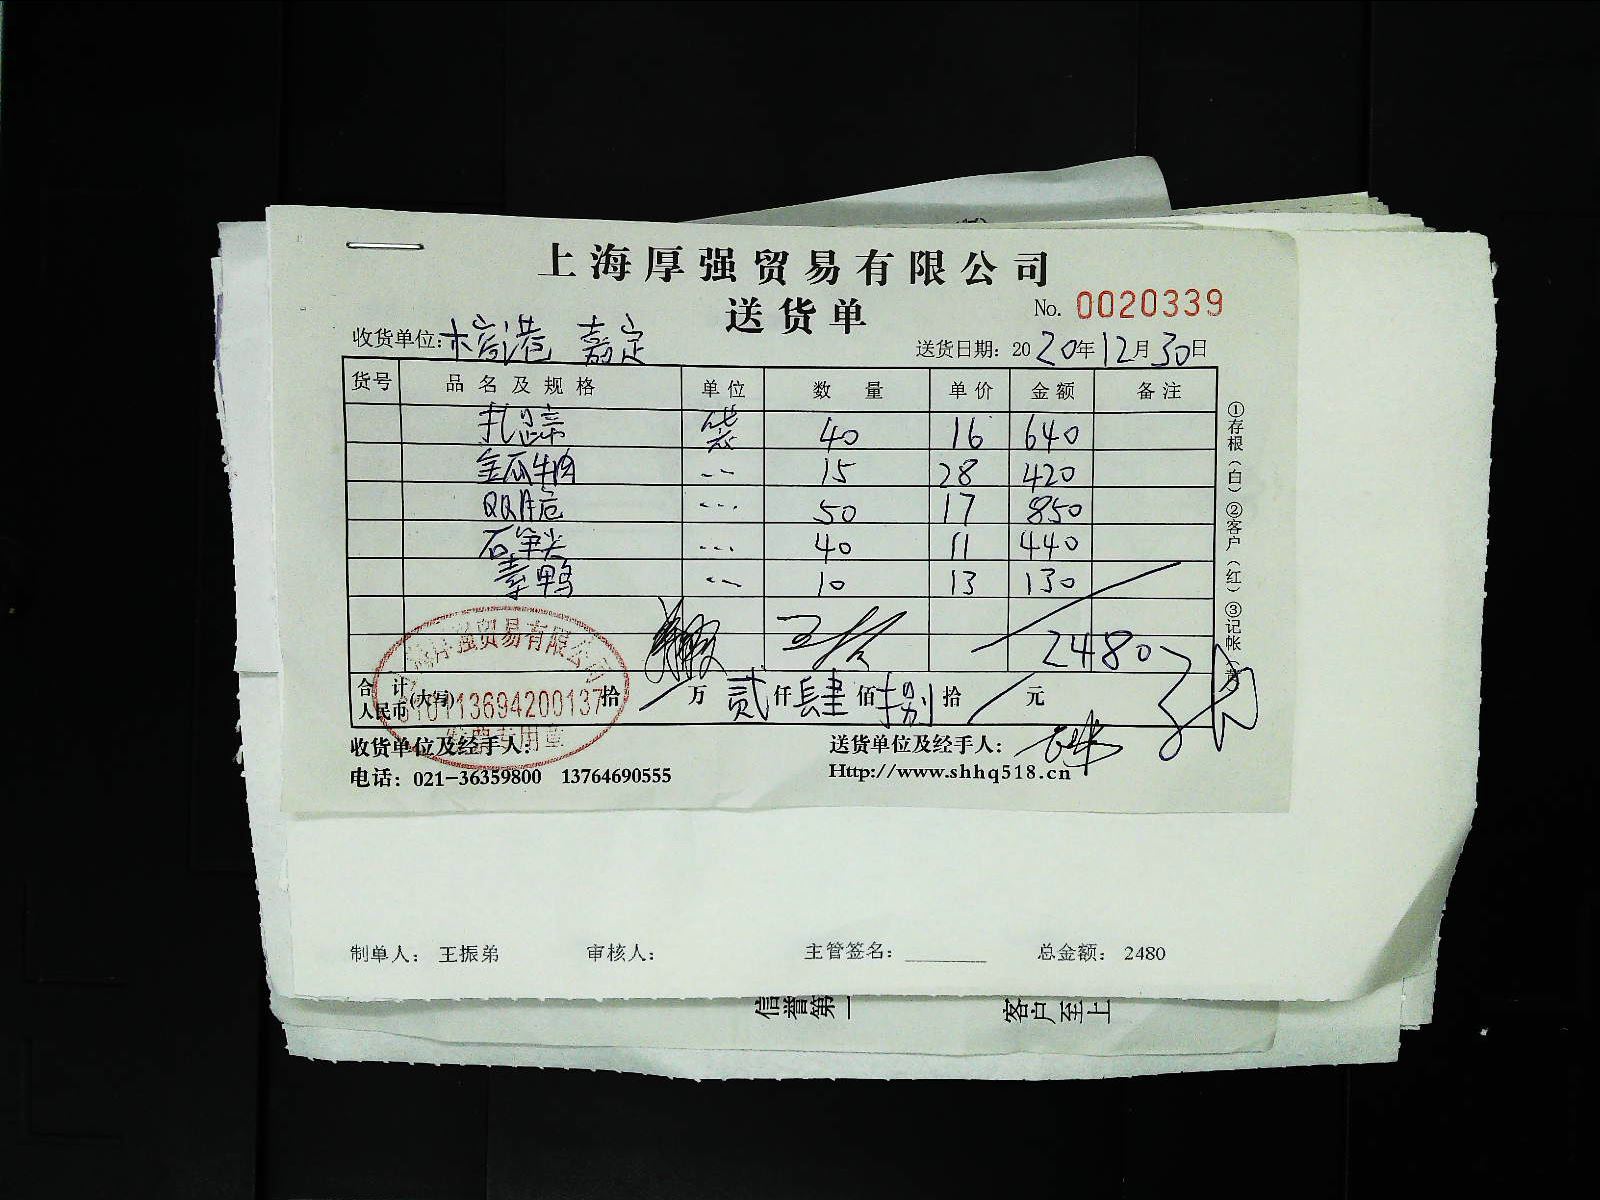 上海厚强贸易有限公司
送货单
No. 0020339
收货单位: 港 嘉定
送货日期: 2020年12月30日
货号 品名及规格 单位 数量 单价 金额 备注
扎蹄 袋 40 16 640
金瓜牛肉 〃 15 28 420
QQ 〃 50 17 850
石笋尖 〃 40 11 440
素鸭 〃 10 13 130
2480
合计人民币(大写) 拾 万 贰仟肆佰捌拾 元
收货单位及经手人:
送货单位及经手人:
电话: 021-36359800 13764690555
Http://www.shhq518.cn
①存根(白)②客户(红)③记帐(黄)
强贸易有限公司
13694200137
专用章
制单人: 王振弟 审核人: 主管签名: ________ 总金额: 2480
信誉第一 客户至上